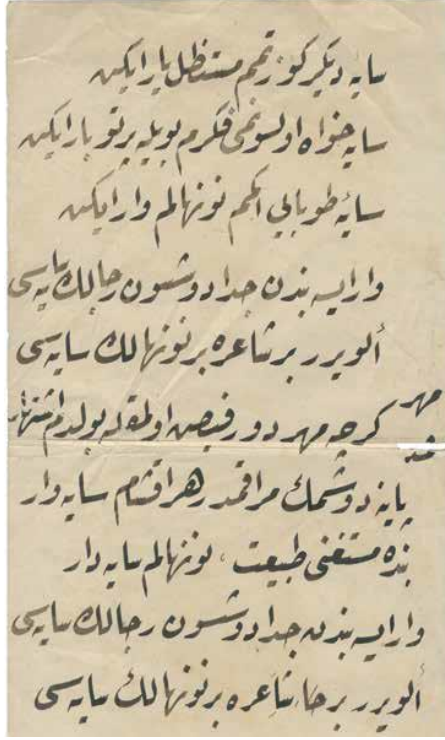 سایه دیگر کوزتمم مستظل یار ایکن
سایه‌خواه اولسونمی فکرم بویله پرتو بار ایکن
سایهٔ طوبایی اکمم نونهالم وار ایکن
وار ایسه بندن جدا دوشسون رجالك سایه‌سی
ألویرر بر شاعره بر نونهالك سایه‌سی
کرچه مهر دور فیض اولمقله بولدم اشتهار
مهر
پایه دوشمك مراقمدر هر اقشام سایه‌وار
بنده مستغنی طبیعت، نونهالم سایه‌دار
وار ایسه بندن جدا دوشسون رجالك سایه‌سی
ألویرر بر شاعره بر نونهالك سایه‌سی